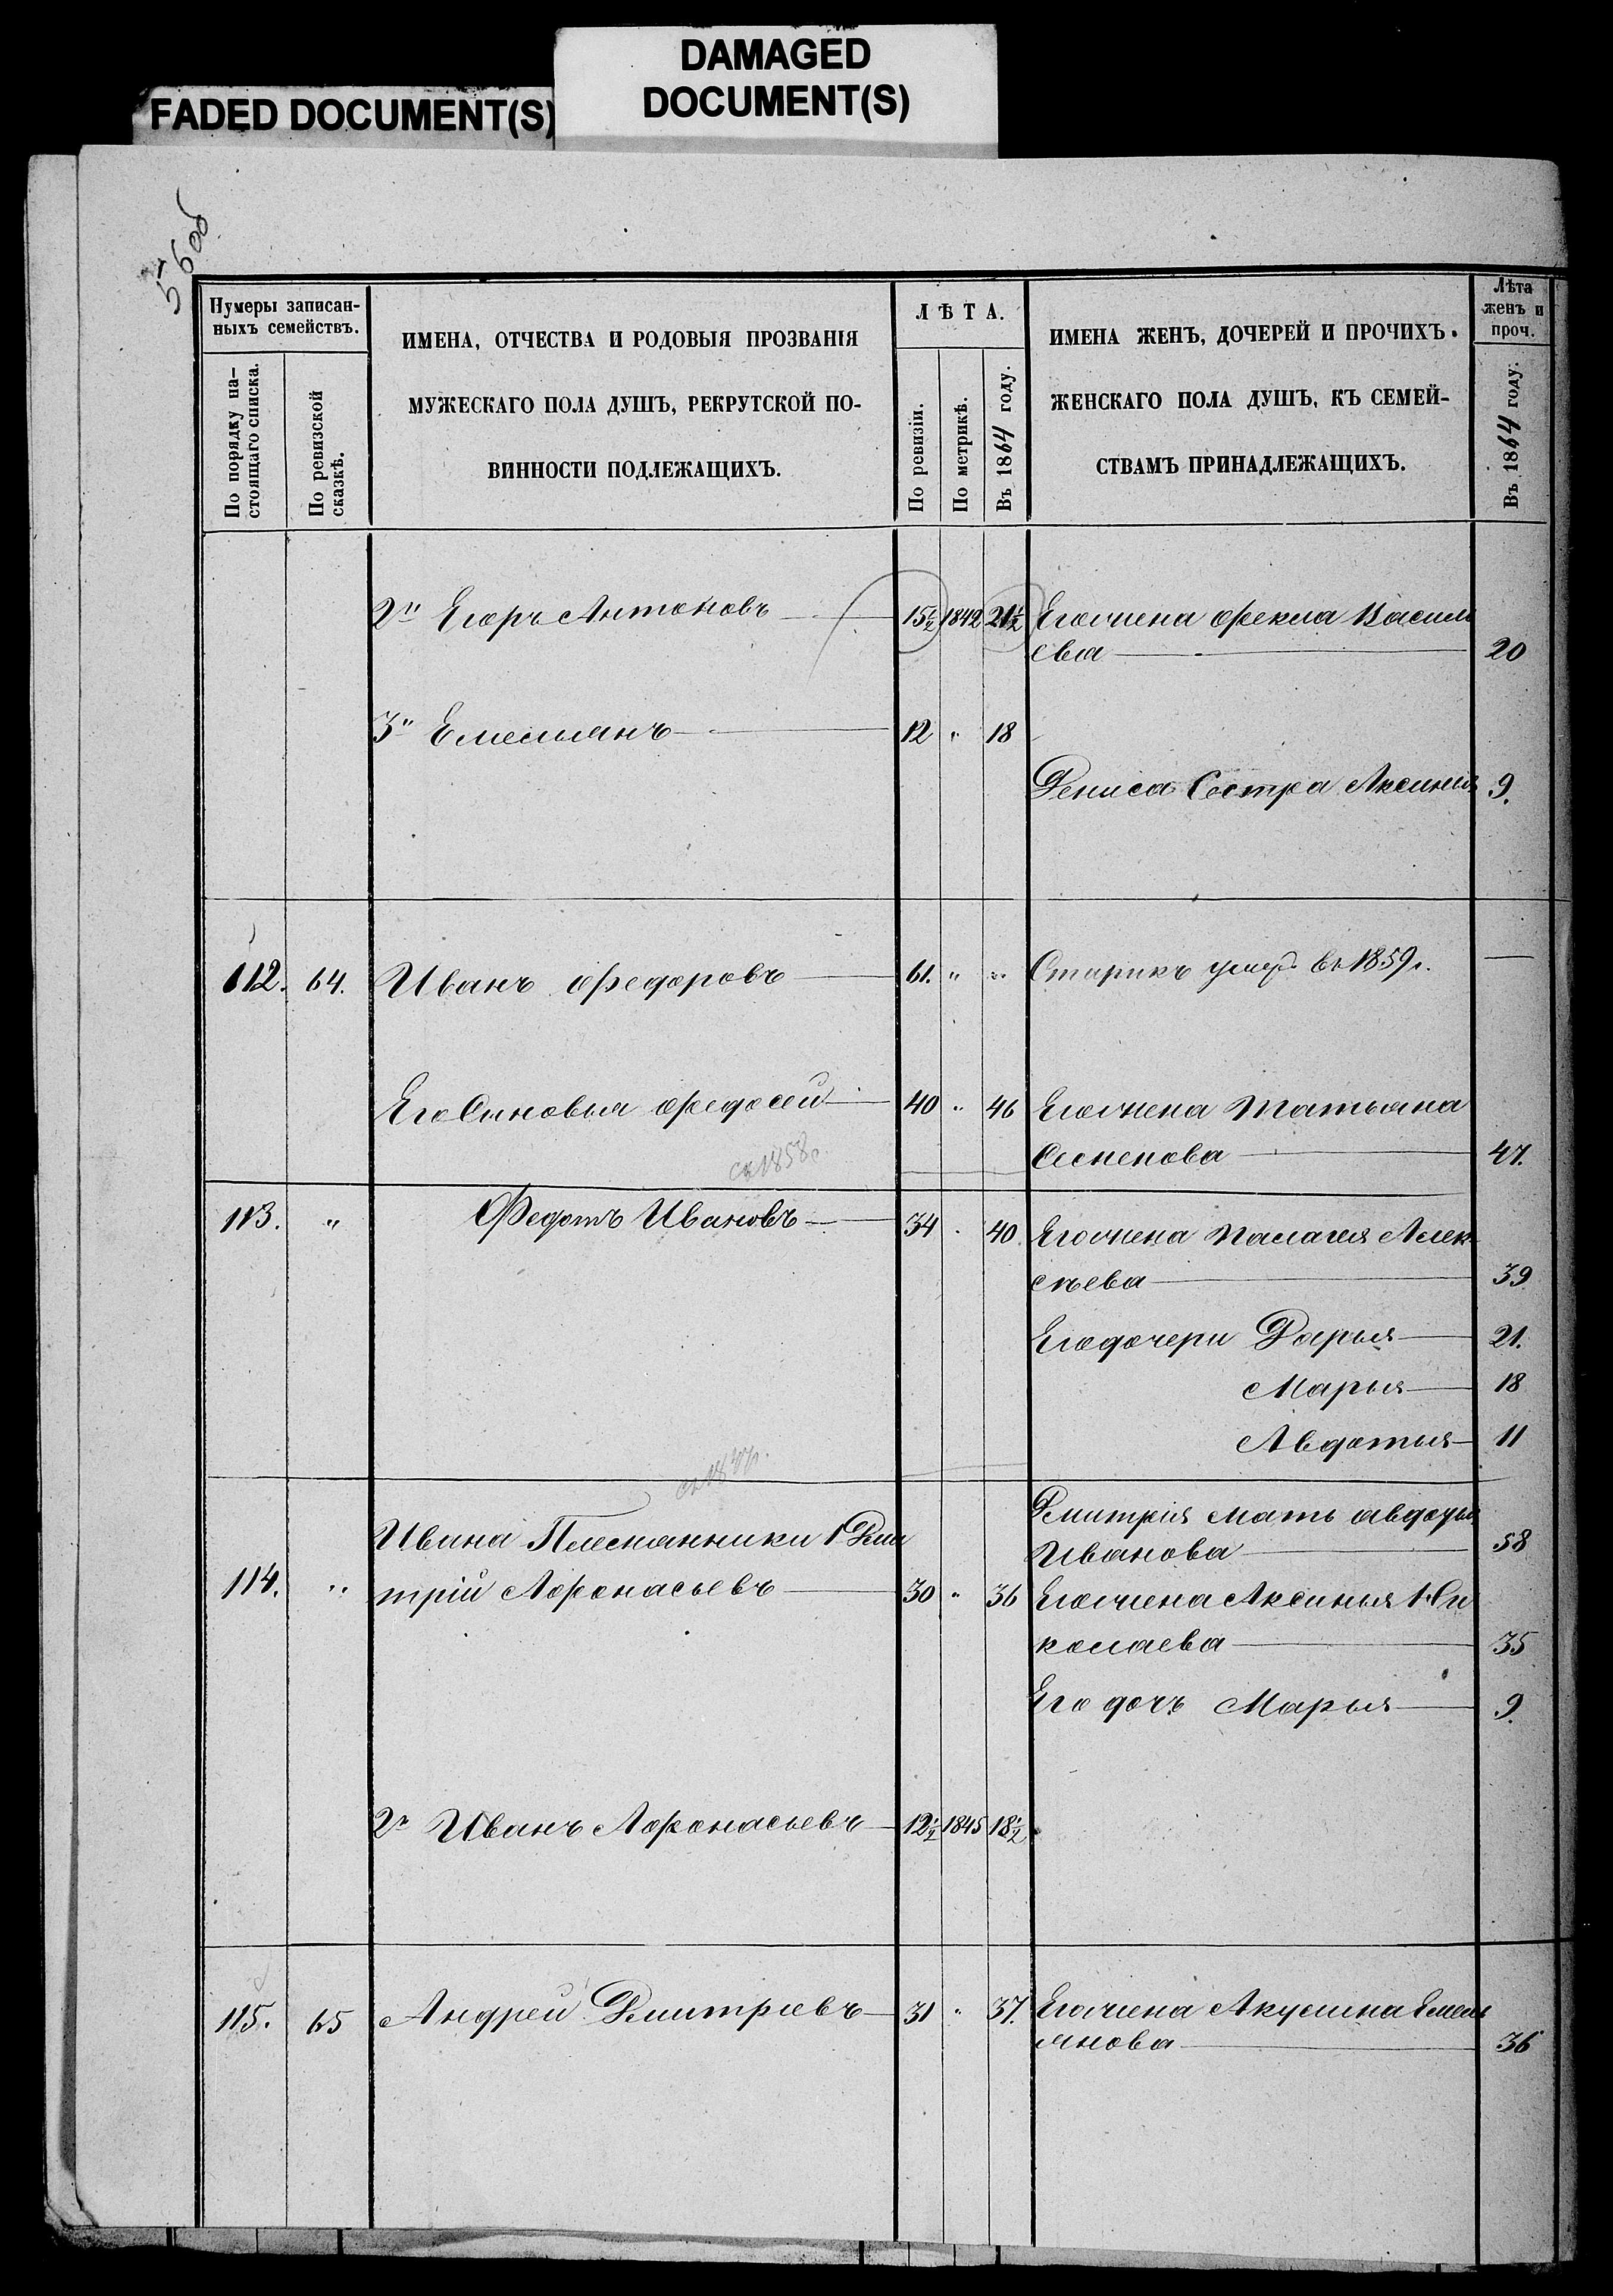 DAMAGED
DOCUMENT(S)
FADED DOCUMENT(S)
56об
Нумеры записан-
ныхъ семействъ.
По порядку на-
стоящаго списка.
По ревизской
сказкѣ.
ИМЕНА, ОТЧЕСТВА И РОДОВЫЯ ПРОЗВАНІЯ
МУЖЕСКАГО ПОЛА ДУШЪ, РЕКРУТСКОЙ ПО-
ВИННОСТИ ПОДЛЕЖАЩИХЪ.
ЛѢТА.
По ревизіи.
По метрикѣ.
Въ 1864 году.
ИМЕНА ЖЕНЪ, ДОЧЕРЕЙ И ПРОЧИХЪ
ЖЕНСКАГО ПОЛА ДУШЪ, КЪ СЕМЕЙ-
СТВАМЪ ПРИНАДЛЕЖАЩИХЪ.
Лѣта
женъ и
проч.
Въ 1864 году.
2й Егоръ Антоновъ 15½ 1842 21½ Его жена Фекла Василь
ева 20
3й Емельянъ 12 " 18
Дениса Сестра Аксинья 9.
112. 64. Иванъ Федоровъ 61. " " Старикъ умер. въ 1859 г.
Его Сыновья Федосей 40 " 46 Его жена Татьяна
Семенова 47.
1858
113. " Федотъ Ивановъ 34 " 40 Его жена Палагея Алек
сѣева 39
Его дочери Дарья 21.
Марья 18
Авдотья 11
Ивана Племянники 1 Дми
Дмитрія мать авдотья
Иванова 58
114. " трій Афонасьевъ 30 " 36 Его жена Аксинья Ни
колаева 35
Его дочь Марья 9.
2й Иванъ Афонасьевъ 12½ 1845 18½
115. 65 Андрей Дмитріевъ 31 " 37. Его жена Акулина Емель
янова 36